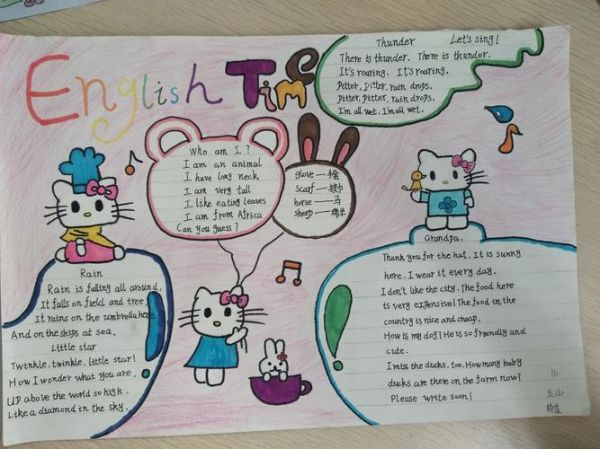 English Time
Thunder Let's sing!
There is thunder. There is thunder.
It's roaring. It's roaring.
Pitter, pitter, rain drops.
Pitter, pitter, rain drops.
I'm all wet. I'm all wet.
Who am I?
I am an animal
I have long neck
I am very tall
I like eating leaves
I am from Africa
Can you guess?
glove——手套
scarf——
horse——马
sheep——绵羊
Rain
Rain is falling all around,
It falls on field and tree,
It rains on the umbrella here,
And on the ships at sea.
Little star
Twinkle, twinkle, little star!
How I wonder what you are,
Up above the world so high,
Like a diamond in the sky.
Grandpa,
Thank you for the hat. It is sunny
here. I wear it every day.
I don't like the city. The food here
is very expensive! The food in the
country is nice and cheap.
How is my dog? He is so friendly and
cute.
I miss the ducks, too. How many baby
ducks are there on the farm now?
Please write soon!